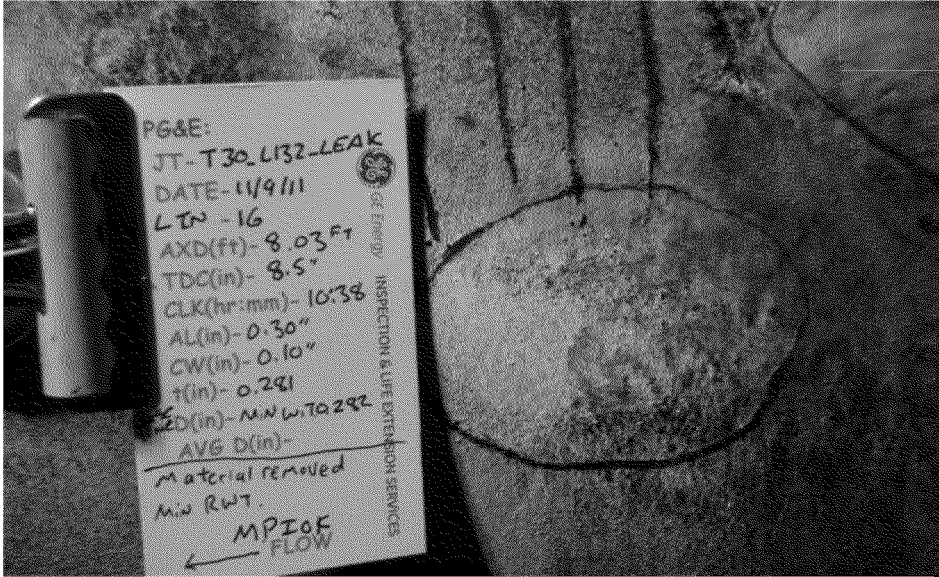 PG&E:
JT- T30_L132_LEAK
DATE- 11/9/11
LIN - 16
AXD(ft)- 8.03 FT
TDC(in)- 8.5"
CLK(hr:mm)- 10:38
AL(in)- 0.30"
CW(in)- 0.10"
t(in)- 0.281
D(in)- MIN WT 0.282
AVG D(in)-
Material removed
Min RWT.
MPI OK
FLOW
GE Energy INSPECTION & LIFE EXTENSION SERVICES